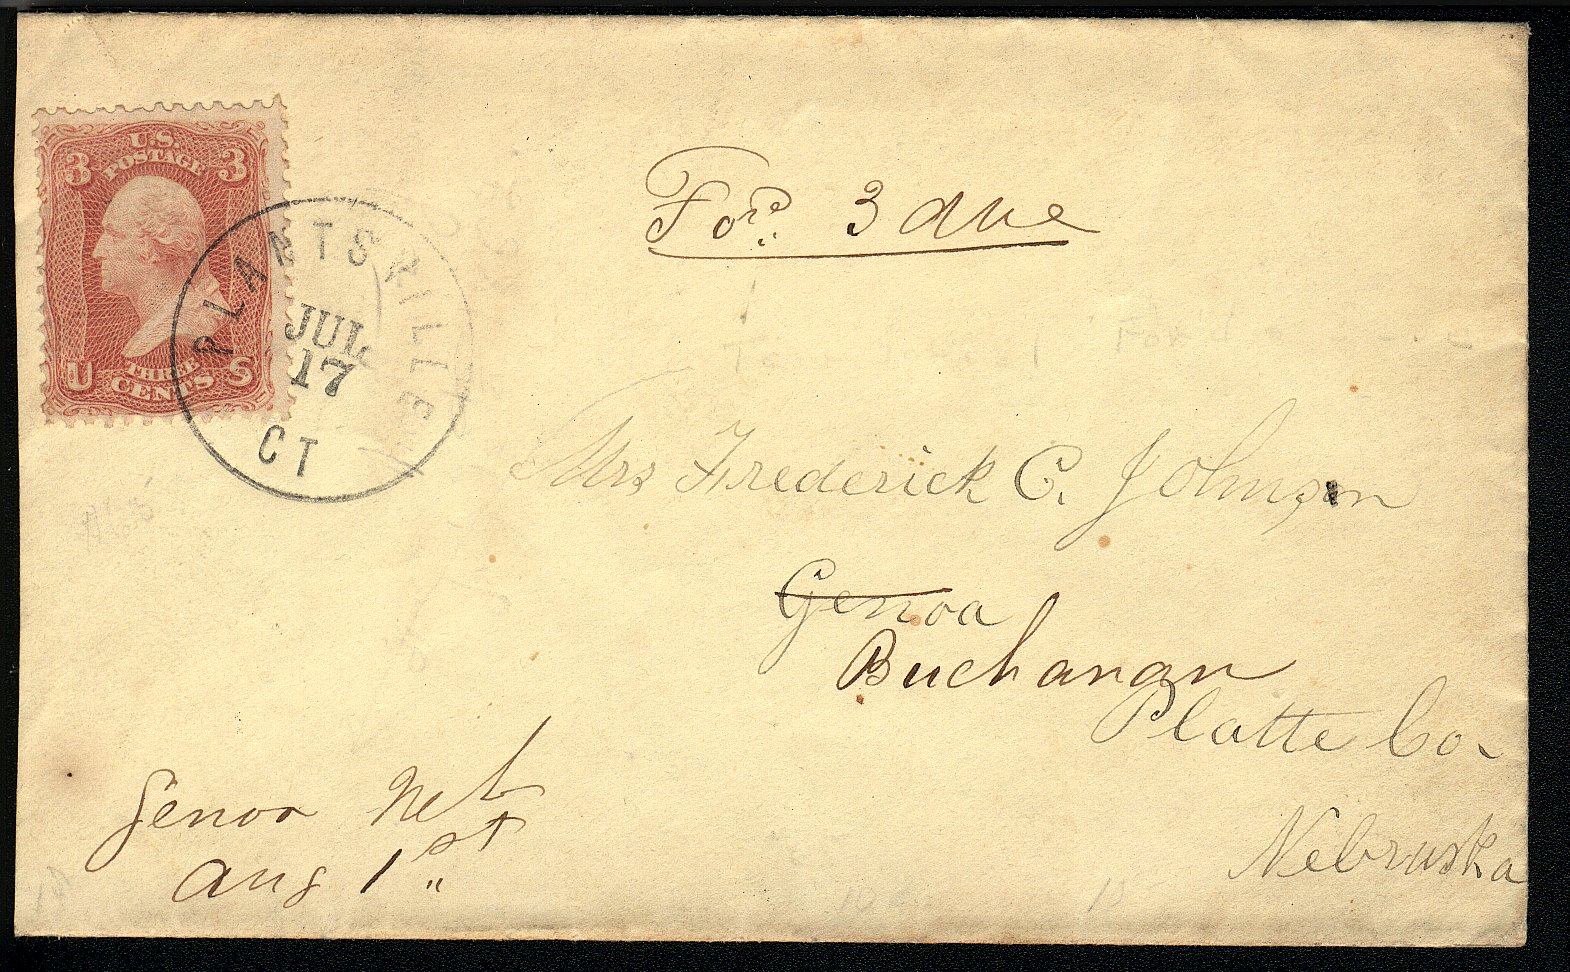 U.S.
POSTAGE
3 3
THREE
CENTS
U S
PLANTSVILLE
JUL
17
CT
For. 3 due
Mrs Frederick C. Johnson
Genoa
Buchanan
Platte Co.
Nebraska
Genoa Neb
Aug 1st